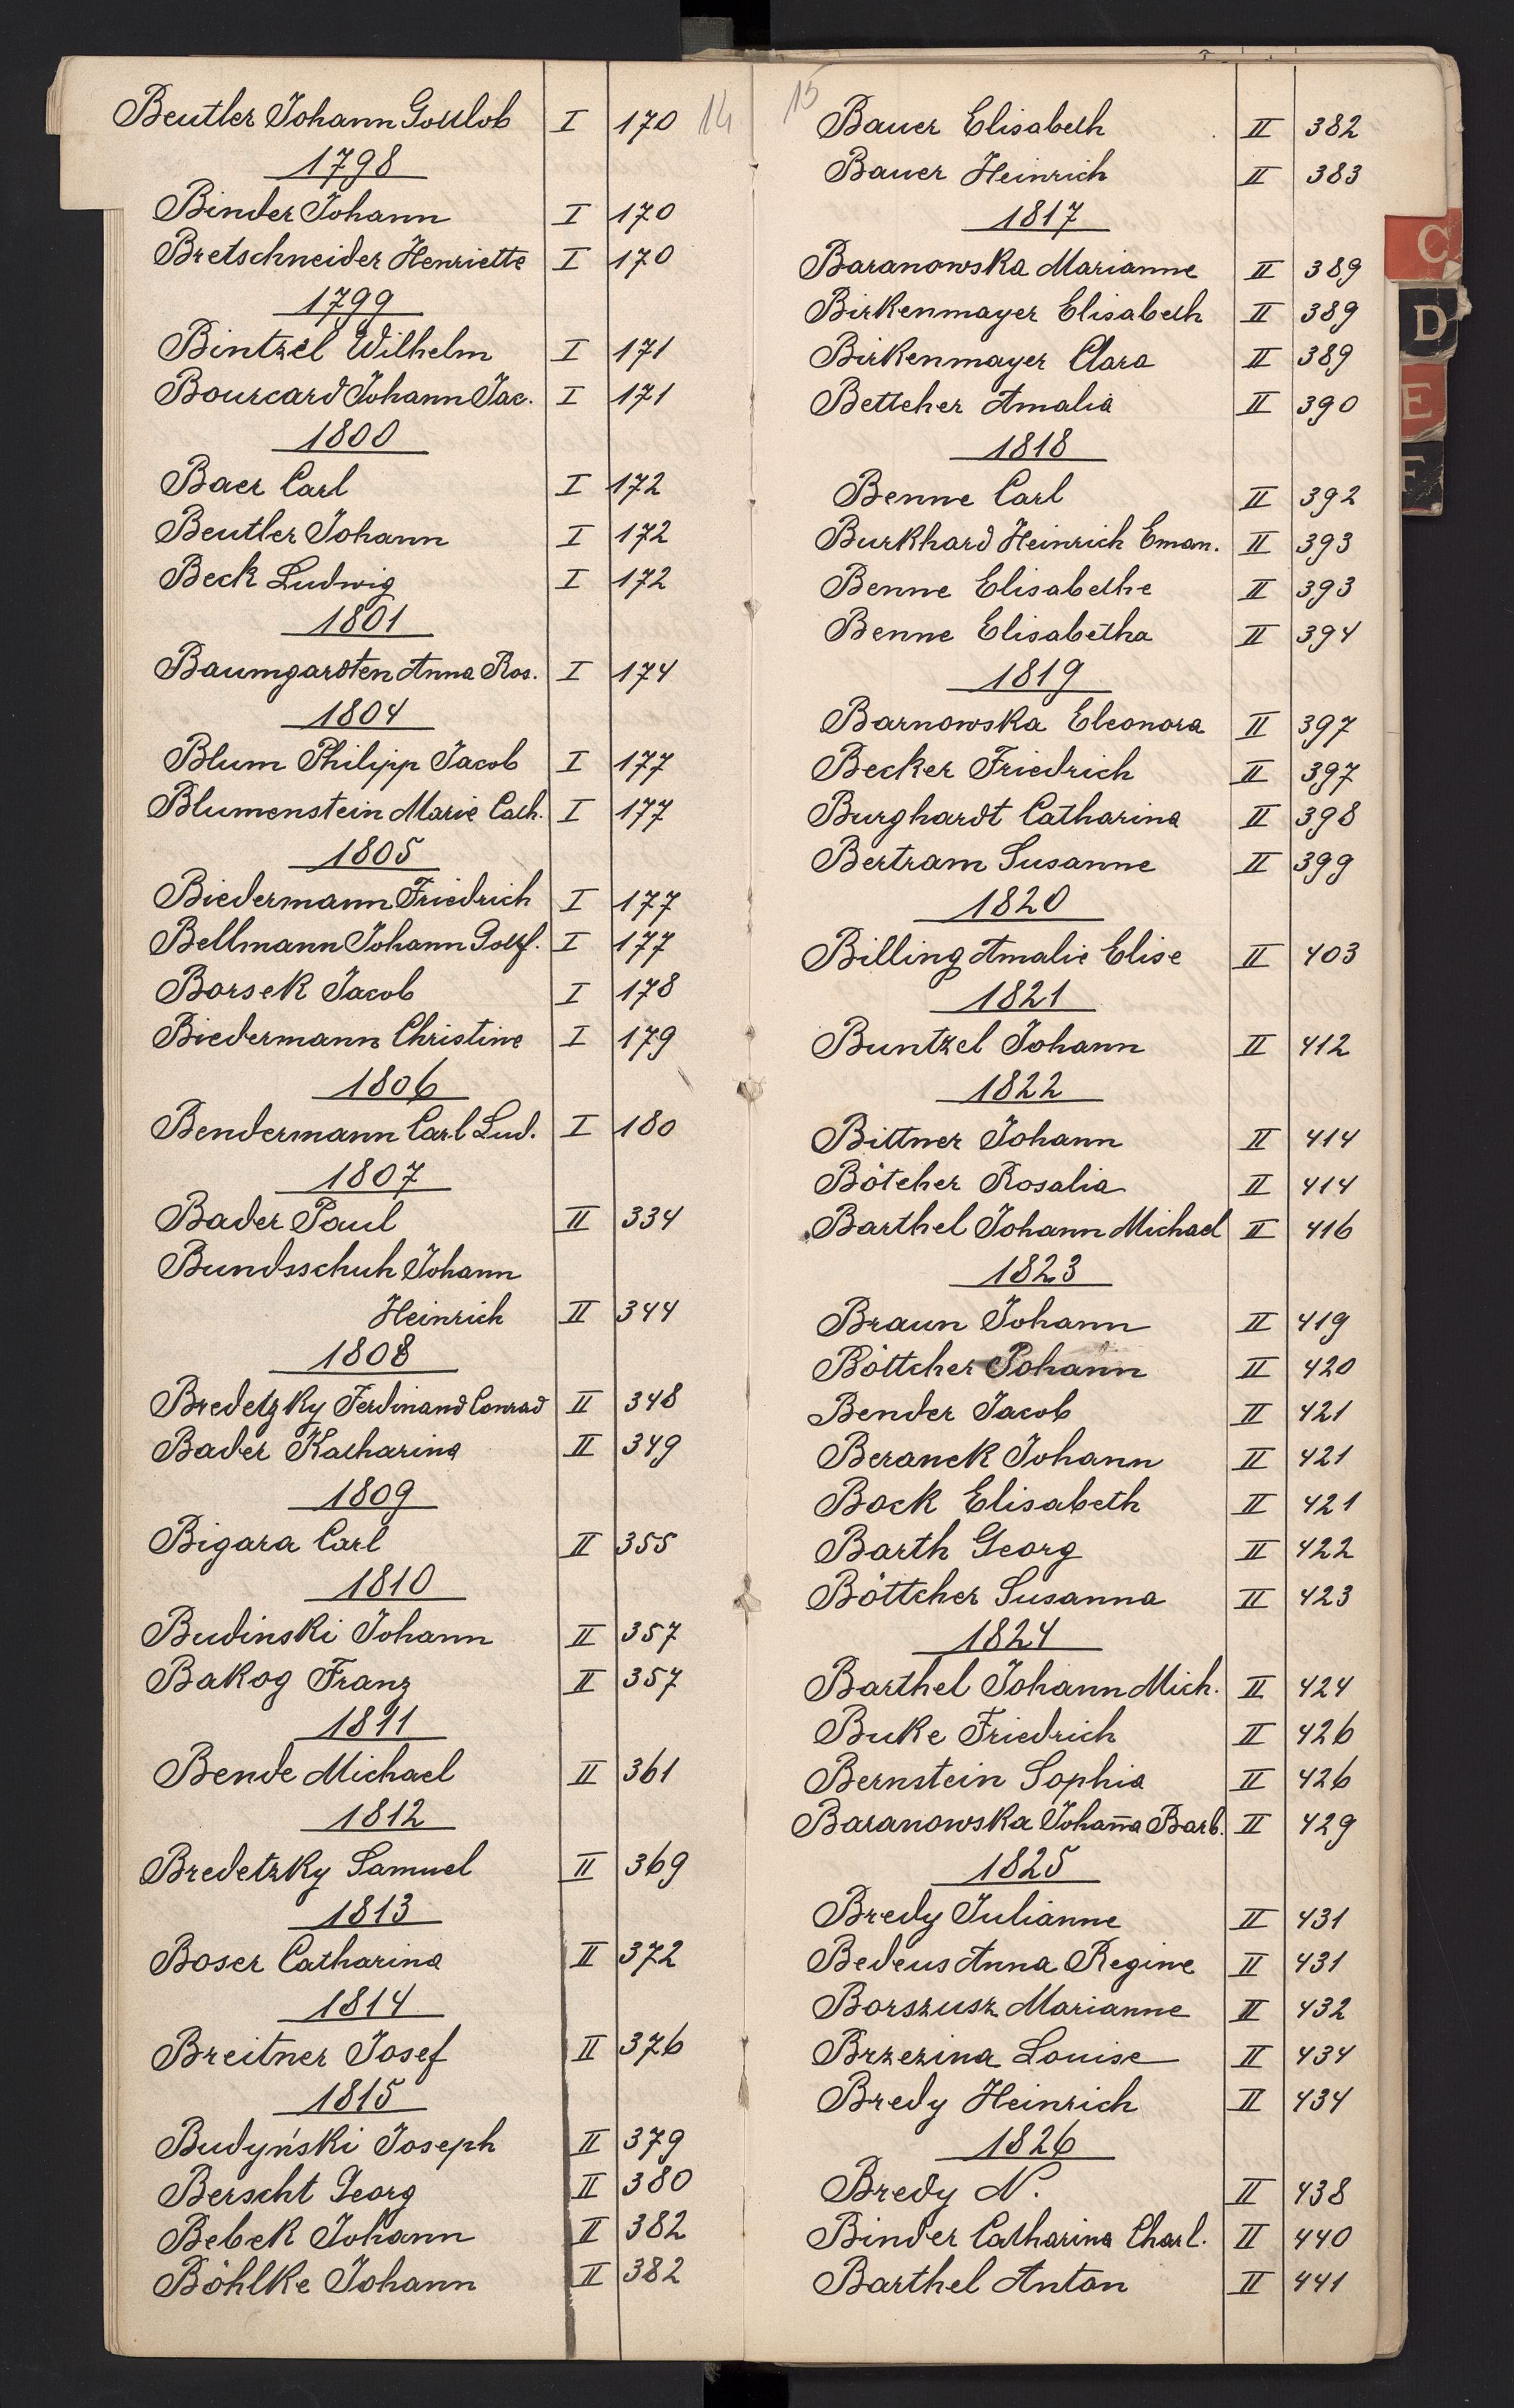 Beutler Johann Gottlob I 170 14
1798
Binder Johann I 170
Bretschneider Henriette I 170
1799
Bintzel Wilhelm I 171
Bourcard Johann Jac. I 171
1800
Baer Carl I 172
Beutler Johann I 172
Beck Ludwig I 172
1801
Baumgardten Anna Ros. I 174
1804
Blum Philipp Jacob I 177
Blumenstein Marie Cath. I 177
1805
Biedermann Friedrich I 177
Bellmann Johann Gottf. I 177
Borsek Jacob I 178
Biedermann Christine I 179
1806
Bendermann Carl Lud. I 180
1807
Bader Paul II 334
Bundsschuh Johann
Heinrich II 344
1808
Bredetzky Ferdinand Conrad II 348
Bader Katharina II 349
1809
Bigara Carl II 355
1810
Budinski Johann II 357
Bakog Franz II 357
1811
Bende Michael II 361
1812
Bredetzky Samuel II 369
1813
Boser Catharina II 372
1814
Breitner Josef II 376
1815
Budyński Joseph II 379
Berscht Georg II 380
Bebek Johann II 382
Böhlke Johann II 382
15
Bauer Elisabeth II 382
Bauer Heinrich II 383
1817
Baranowska Marianne II 389
Birkenmayer Elisabeth II 389
Birkenmayer Clara II 389
Bettcher Amalia II 390
1818
Benne Carl II 392
Burkhard Heinrich Eman. II 393
Benne Elisabethe II 393
Benne Elisabetha II 394
1819
Barnowska Eleonora II 397
Becker Friedrich II 397
Burghardt Catharina II 398
Bertram Susanne II 399
1820
Billing Amalie Elise II 403
1821
Buntzel Johann II 412
1822
Bittner Johann II 414
Bötcher Rosalia II 414
Barthel Johann Michael II 416
1823
Braun Johann II 419
Böttcher Johann II 420
Bender Jacob II 421
Beranek Johann II 421
Bock Elisabeth II 421
Barth Georg II 422
Böttcher Susanna II 423
1824
Barthel Johann Mich. II 424
Buke Friedrich II 426
Bernstein Sophia II 426
Baranowska Johan̄a Barb. II 429
1825
Bredy Julianne II 431
Bedeus Anna Regine II 431
Borszusz Marianne II 432
Brzezina Louise II 434
Bredy Heinrich II 434
1826
Bredy N. II 438
Binder Catharina Charl. II 440
Barthel Anton II 441
C
D
E
F